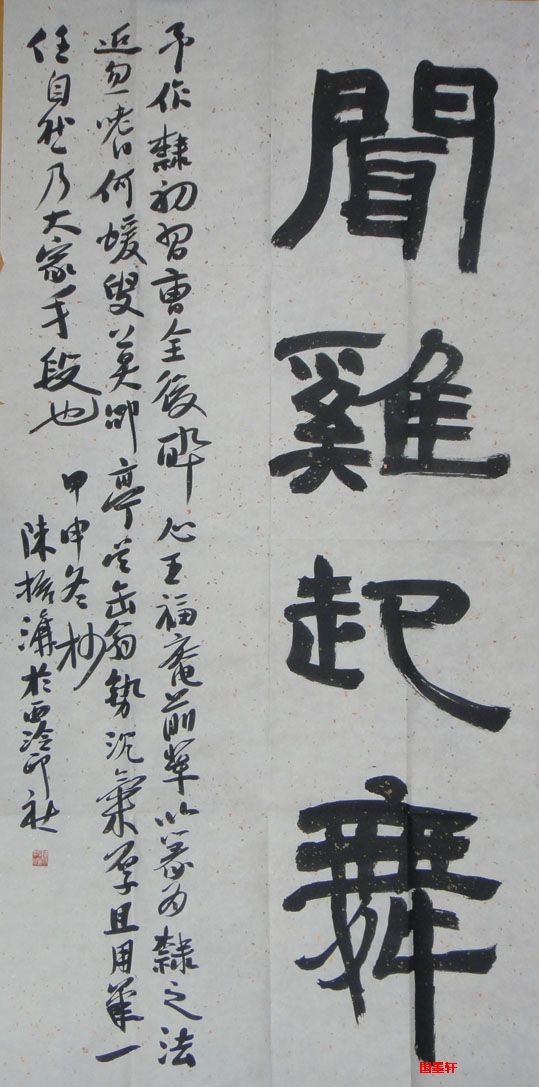 聞雞起舞
予作隸初習曹全後醉心王福庵前輩以篆為隸之法
近忽嗜何蝯叟莫邵亭吳缶翁勢沉氣厚且用筆一
任自然乃大家手段也
甲申冬杪
陳振濂於西泠印社
國墨軒